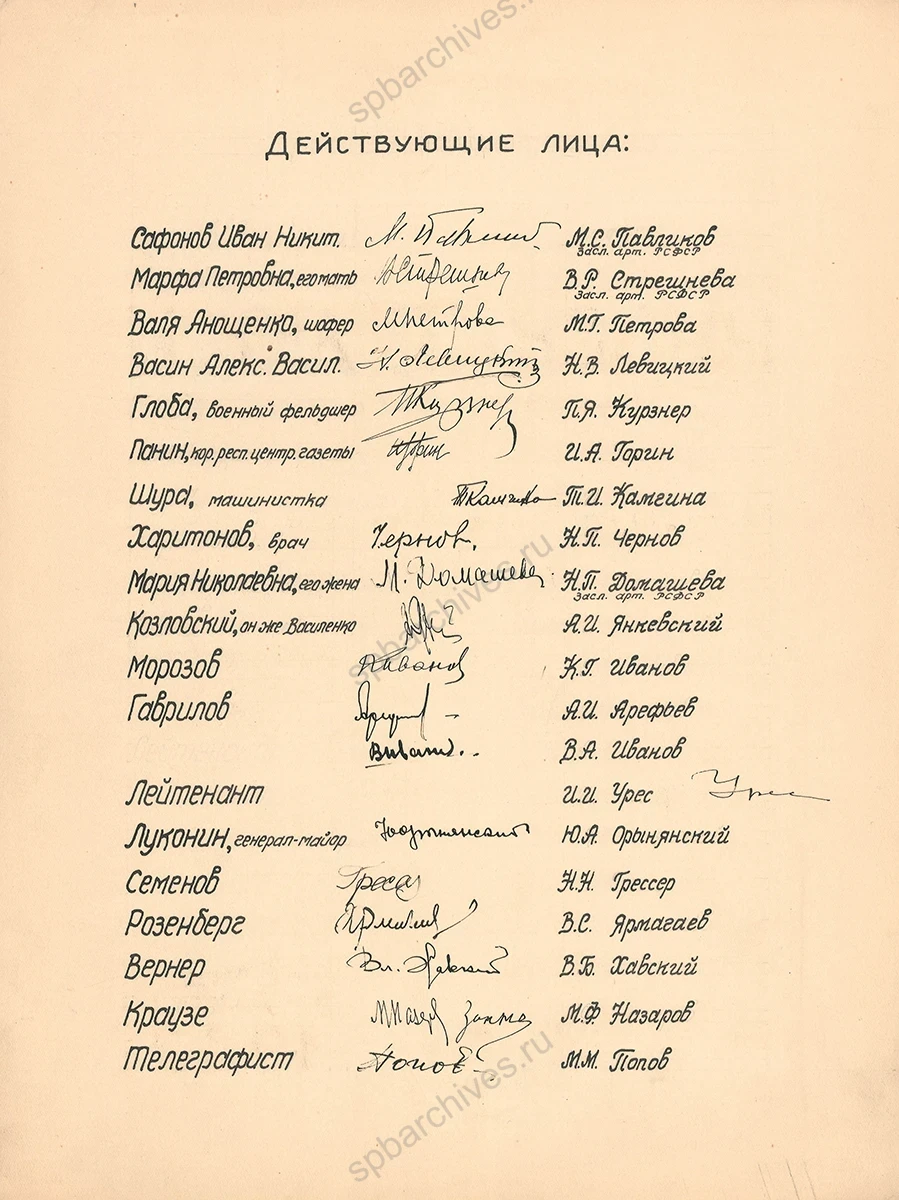 spbarchives.ru
Действующие лица:
Сафонов Иван Никит. М.С. Павликов
Засл. арт. РСФСР
Марфа Петровна, его мать В.Р. Стрешнева
Засл. арт. РСФСР
Валя Анощенко, шофер МПетрова М.Г. Петрова
Васин Алекс. Васил. Н. Левицкий Н.В. Левицкий
Глоба, военный фельдшер ПКурзнер П.Я. Курзнер
Панин, кор. респ. центр. газеты И.А. Горин
Шура, машинистка Т.И. Камгина
Харитонов, врач Чернов. Н.П. Чернов
spbarchives.ru
Мария Николаевна, его жена Н. Домашева Н.П. Домашева
Засл. арт. РСФСР
Козловский, он же Василенко А.И. Янкевский
Морозов КИванов К.Г. Иванов
Гаврилов А.И. Арефьев
В.А. Иванов
Лейтенант И.И. Урес Урес
Луконин, генерал-майор Ю.А. Орынянский
Семенов Н.Н. Грессер
Розенберг В.С. Ярмагаев
Вернер Вл. Хавский В.Б. Хавский
Краузе М.Ф. Назаров
Телеграфист Попов М.М. Попов
spbarchives.ru